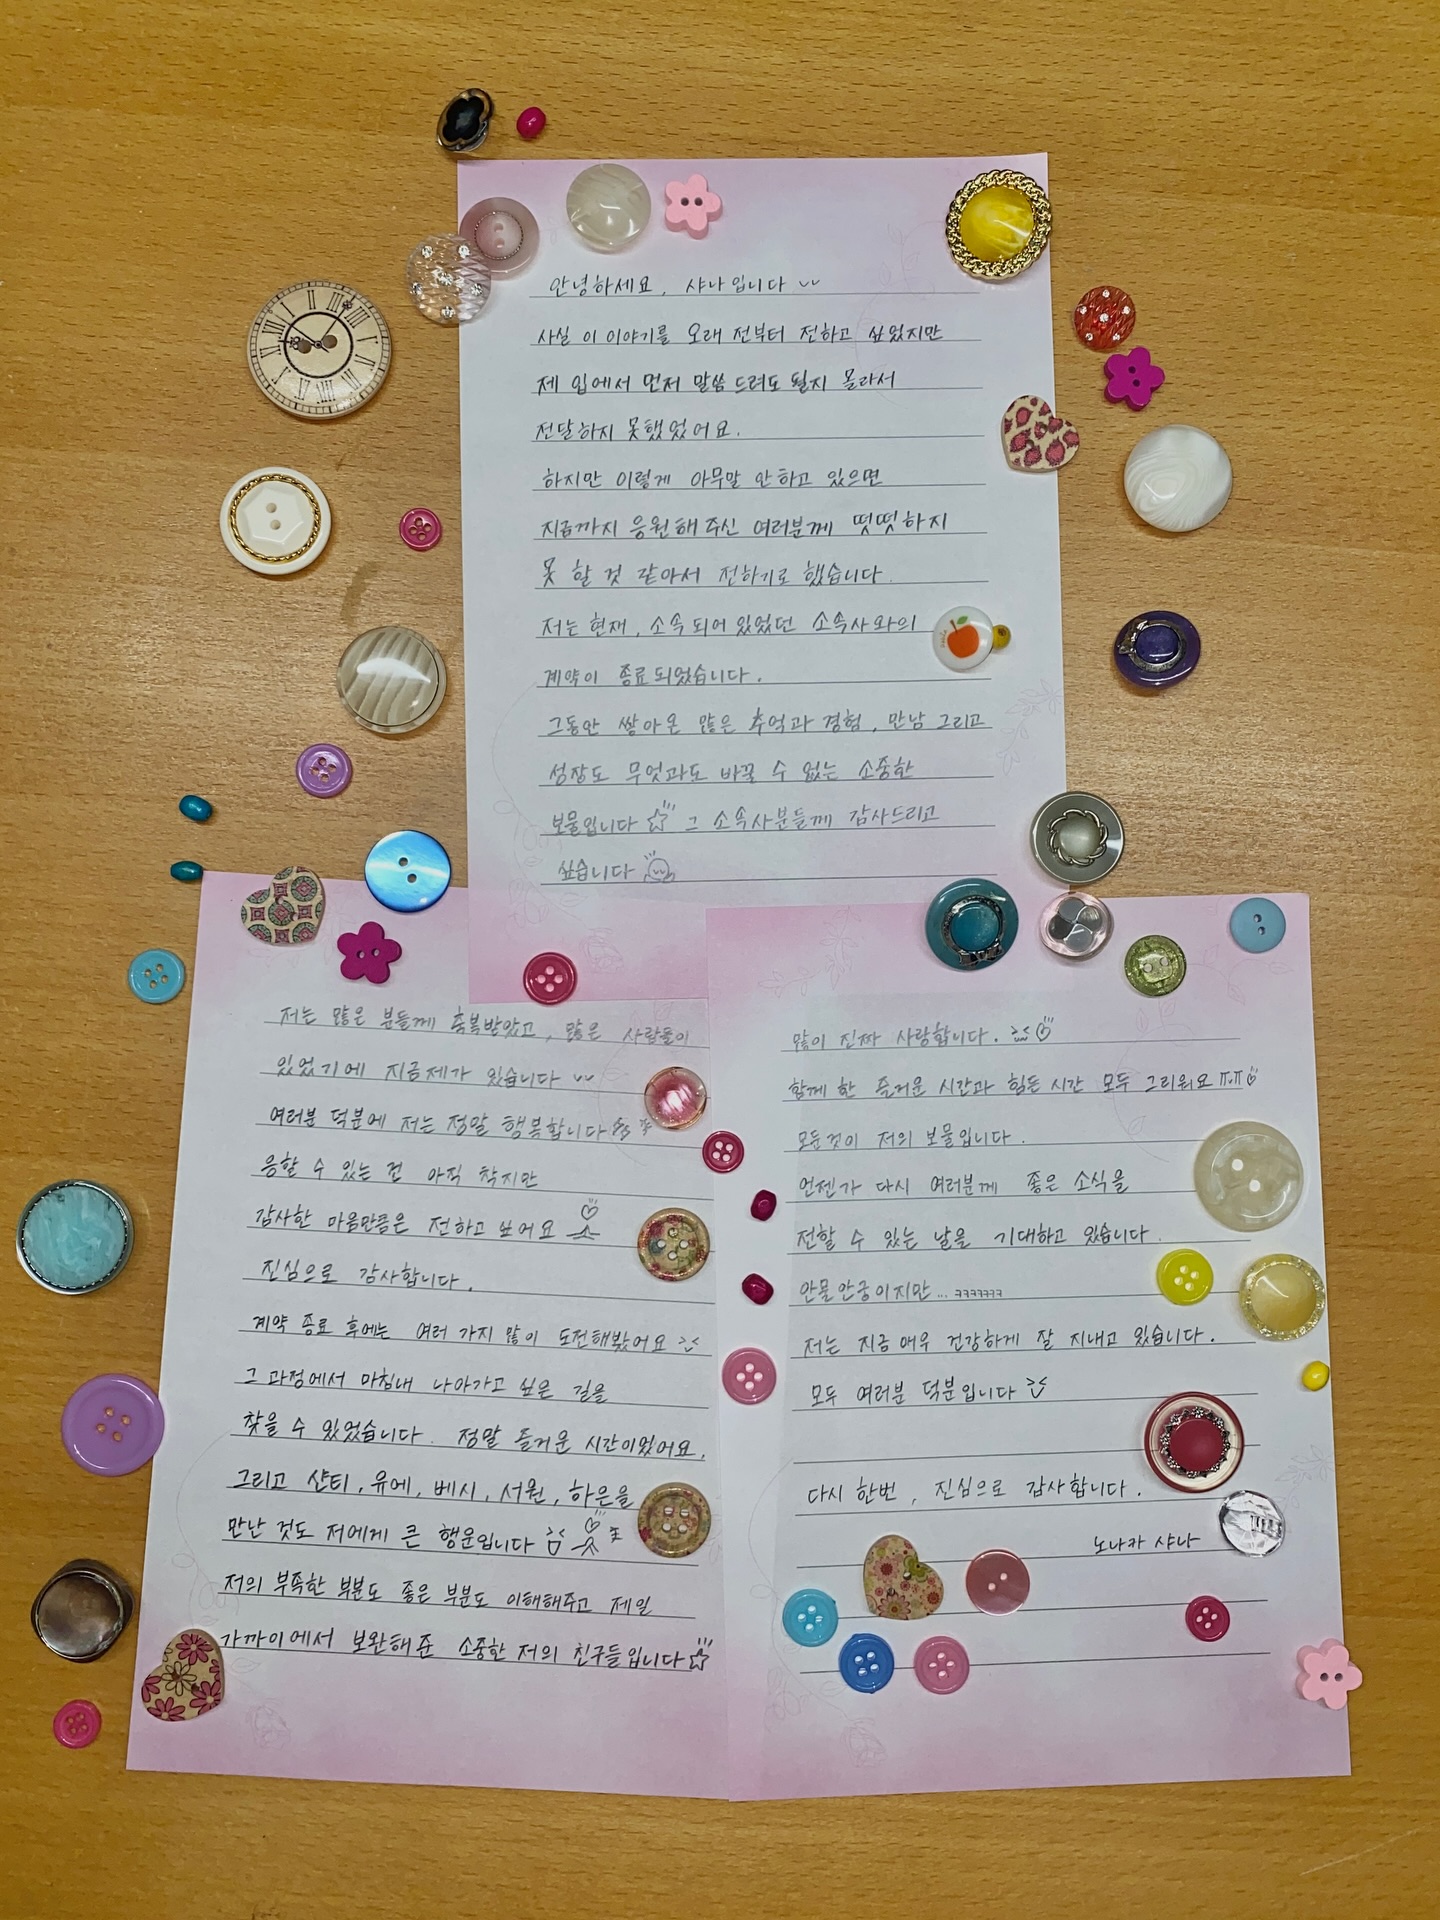 안녕하세요, 샤나입니다
사실 이 이야기를 오래 전부터 전하고 싶었지만
제 입에서 먼저 말씀 드려도 될지 몰라서
전달하지 못했었어요.
하지만 이렇게 아무말 안하고 있으면
지금까지 응원해 주신 여러분께 떳떳하지
못 할 것 같아서 전하기로 했습니다.
저는 현재, 소속되어 있었던 소속사와의
계약이 종료되었습니다.
그동안 쌓아온 많은 추억과 경험, 만남 그리고
성장도 무엇과도 바꿀 수 없는 소중한
보물입니다 그 소속사분들께 감사드리고
싶습니다
저는 많은 분들께 축복받았고, 많은 사람들이
있었기에 지금제가 있습니다
여러분 덕분에 저는 정말 행복합니다
응할 수 있는 건 아직 작지만
감사한 마음만큼은 전하고 싶어요
진심으로 감사합니다.
계약 종료 후에는 여러 가지 많이 도전해봤어요
그 과정에서 마침내 나아가고 싶은 길을
찾을 수 있었습니다. 정말 즐거운 시간이었어요.
그리고 샨티, 유에, 베시, 서원, 하은을
만난 것도 저에게 큰 행운입니다
저의 부족한 부분도 좋은 부분도 이해해주고 제일
가까이에서 보완해 준 소중한 저의 친구들입니다
많이 진짜 사랑합니다.
함께 한 즐거운 시간과 힘든 시간 모두 그리워요 ㅠ.ㅠ
모든것이 저의 보물입니다.
언젠가 다시 여러분께 좋은 소식을
전할 수 있는 날을 기대하고 있습니다.
안물안궁이지만... ㅋㅋㅋㅋㅋㅋㅋ
저는 지금 매우 건강하게 잘 지내고 있습니다.
모두 여러분 덕분입니다
다시 한번, 진심으로 감사합니다.
노나카 샤나